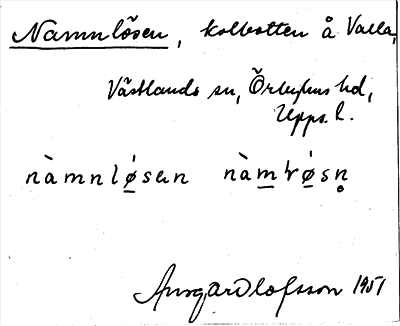 Namnlösen, kolbotten å Valla,
Västlands sn, Örbyhus hd,
Upps. l.
nàmnlo̸̲sen nàm̲lø̲sn̥
Ansgar Olofsson 1951